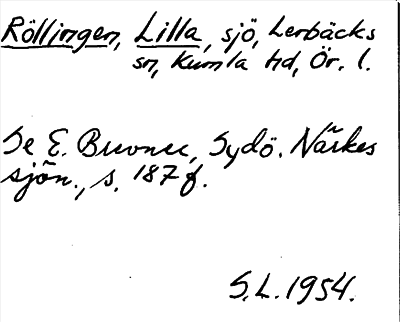 Röllingen, Lilla, sjö, Lerbäcks
sn, Kumla hd, Ör. l.
Se E. Brevner, Sydö. Närkes
sjön., s. 187 f.
S.L. 1954.